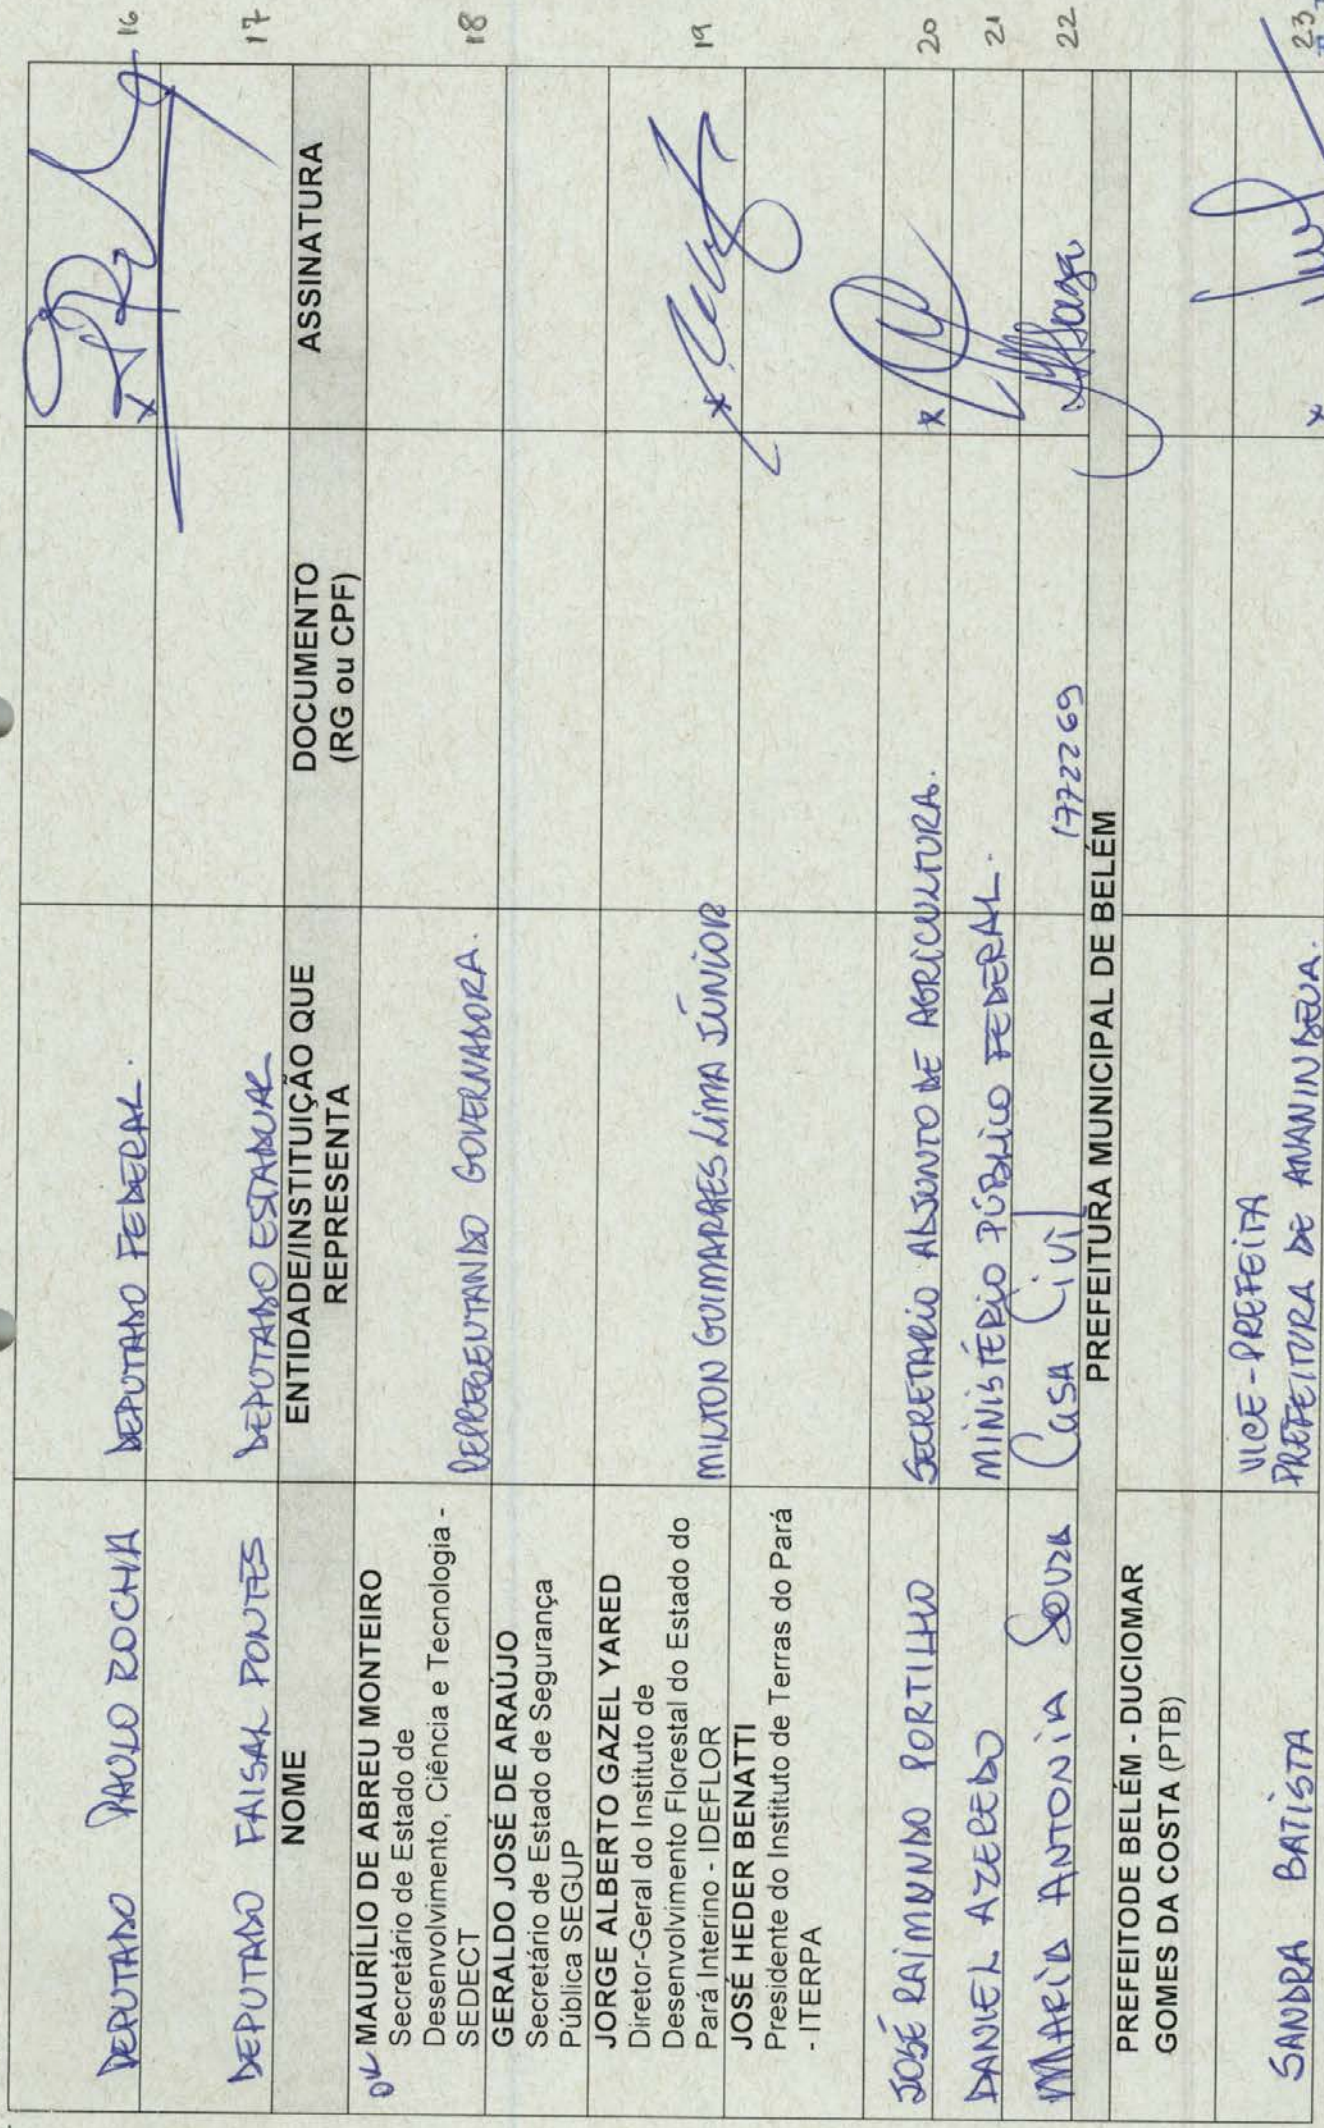 DEPUTADO PAULO ROCHA DEPUTADO FEDERAL. x 16
DEPUTADO FAISAL PONTES DEPUTADO ESTADUAL 17
NOME
ENTIDADE/INSTITUIÇÃO QUE
REPRESENTA
DOCUMENTO
(RG ou CPF)
ASSINATURA
OK MAURÍLIO DE ABREU MONTEIRO
Secretário de Estado de
Desenvolvimento, Ciência e Tecnologia -
SEDECT
REPRESENTANDO GOVERNADORA. 18
GERALDO JOSÉ DE ARAÚJO
Secretário de Estado de Segurança
Pública SEGUP
JORGE ALBERTO GAZEL YARED
Diretor-Geral do Instituto de
Desenvolvimento Florestal do Estado do
Pará Interino - IDEFLOR
MILTON GUIMARAES LIMA JÚNIOR x 19
JOSÉ HEDER BENATTI
Presidente do Instituto de Terras do Pará
- ITERPA
JOSÉ RAIMUNDO PORTILHO SECRETARIO ADJUNTO DE AGRICULTURA. x 20
DANIEL AZEREDO MINISTÉRIO PÚBLICO FEDERAL. 21
MARIA ANTONIA SOUZA CASA Civil 1772269 22
PREFEITURA MUNICIPAL DE BELÉM
PREFEITODE BELÉM - DUCIOMAR
GOMES DA COSTA (PTB)
SANDRA BATISTA
VICE-PREFEITA
PREFEITURA DE ANANINDEUA. x 23